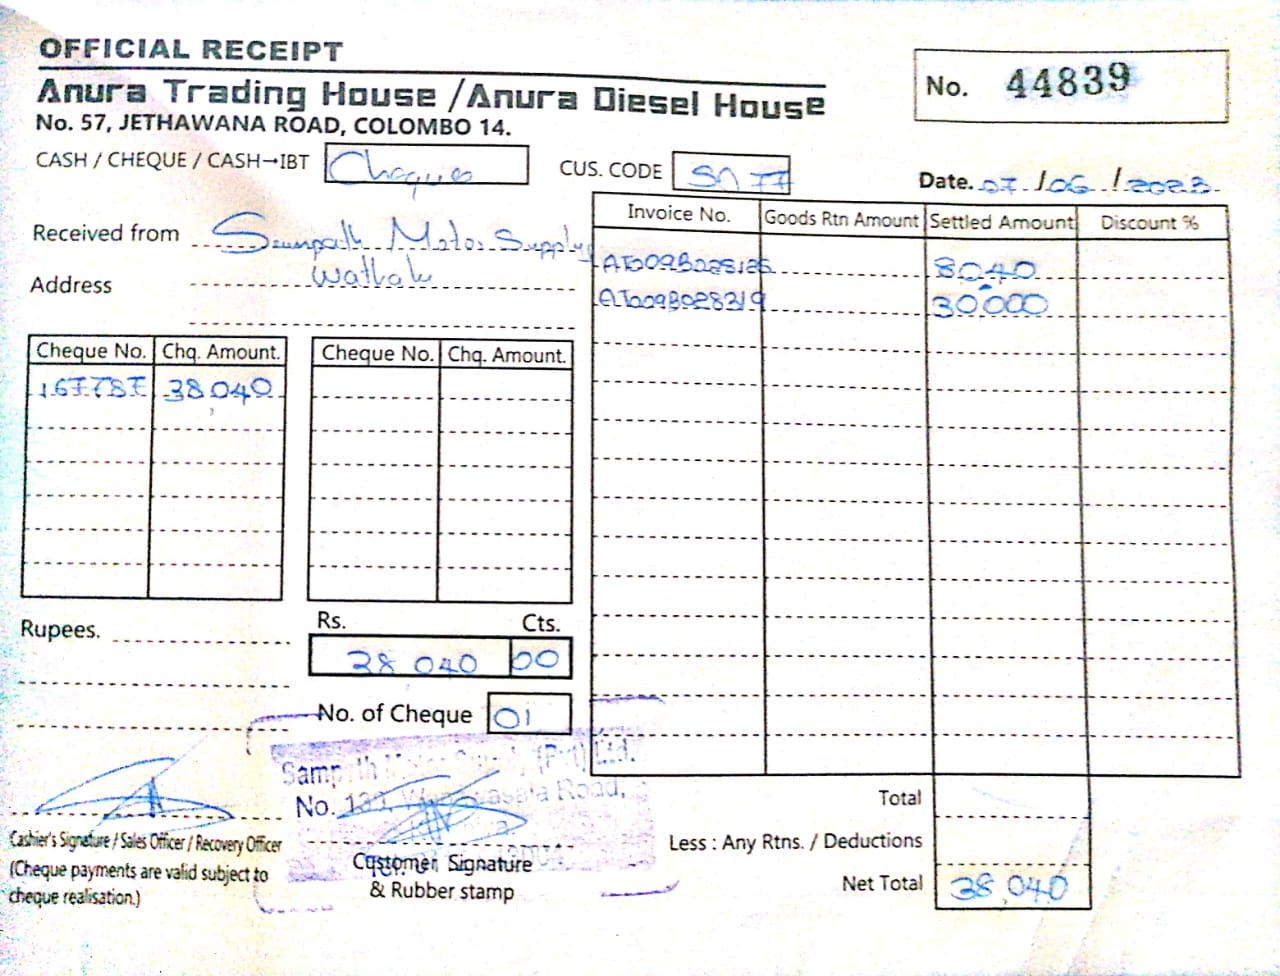 OFFICIAL RECEIPT
Anura Trading House / Anura Diesel House
No. 57, JETHAWANA ROAD, COLOMBO 14.
No. 44839
CASH / CHEQUE / CASH→IBT Cheque
CUS. CODE SA 77
Date. 07/06/2023
Received from Sampath Motor Supply
Address
Invoice No. Goods Rtn Amount Settled Amount Discount %
8040
30,000
Cheque No. Chq. Amount. Cheque No. Chq. Amount.
38 040
Rupees.
Rs. Cts.
38 040 00
No. of Cheque 01
Sampath Motor Supply (Pvt) Ltd.
No. Road,
Cashier's Signature / Sales Officer / Recovery Officer
(Cheque payments are valid subject to
cheque realisation.)
Customer Signature
& Rubber stamp
Total
Less : Any Rtns. / Deductions
Net Total 38,040